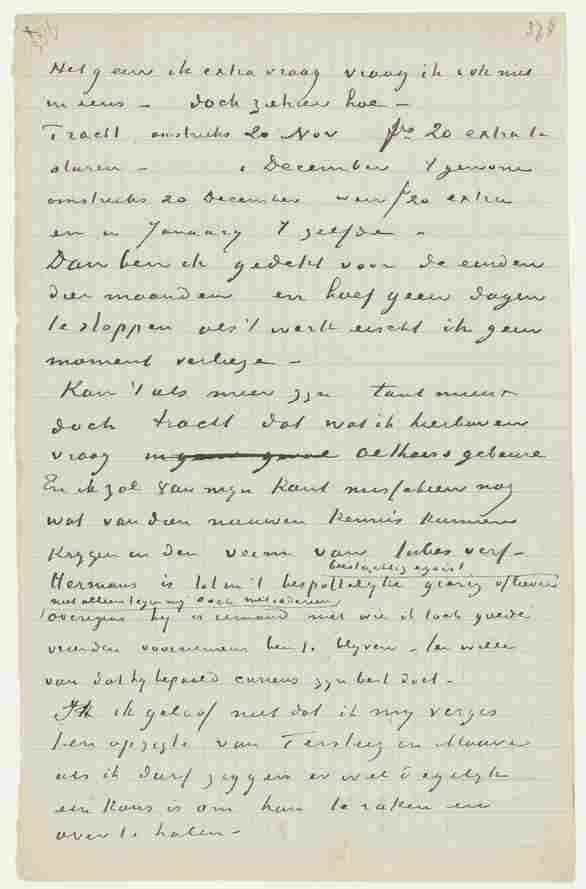 Hetgeen ik extra vraag vraag ik ook niet
in eens – doch ziehier hoe –
Tracht omstreeks 20 Nov frs 20 extra te
sturen – in December 't gewone
omstreeks 20 December weer fr 20 extra
en in January 't zelfde –
Dan ben ik gedekt voor de einden
dier maanden en hoef geen dagen
te stoppen als 't werk eischt ik geen
moment verlieze –
Kan 't als meer zyn tant mieux
doch tracht dat wat ik hierboven
vraag in gebeure
En ik zal van myn kant misschien nog
wat van dien nieuwen kennis kunnen
krygen in den vorm van tubes verf –
beestachtig egoist
Hermans is tot in 't bespottelyke gierig of liever
niet alleen tegen my doch met iedereen
overigens hy is iemand met wie ik toch goede
vrienden voornemens ben te blyven – ten wille
van dat hy bepaald curieus zyn best doet –
ik geloof niet dat ik my vergis
ten opzigte van Tersteeg en Mauve
als ik durf zeggen er wel degelyk
een kans is om hen te raken en
over te halen –